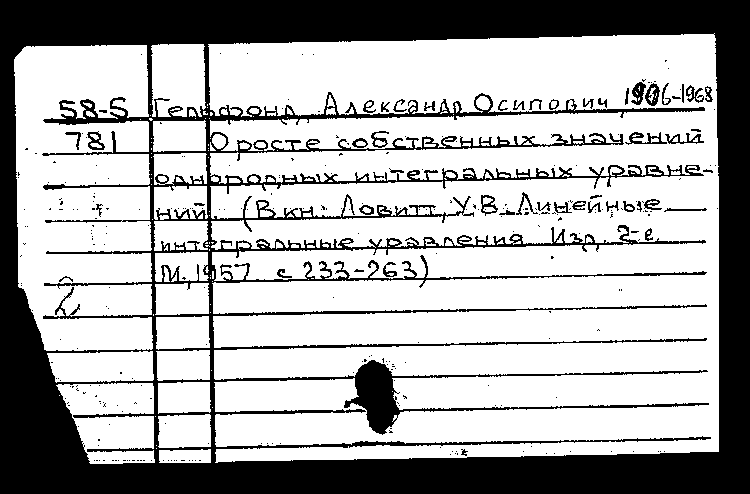 58-5 Гельфонд, Александр Осипович, 1906-1968
781 О росте собственных значений
однородных интегральных уравне-
ний. (В кн: Ловитт, У.В. Линейные
интегральные уравления. Изд. 2-е.
М., 1957 с 233-263)
2